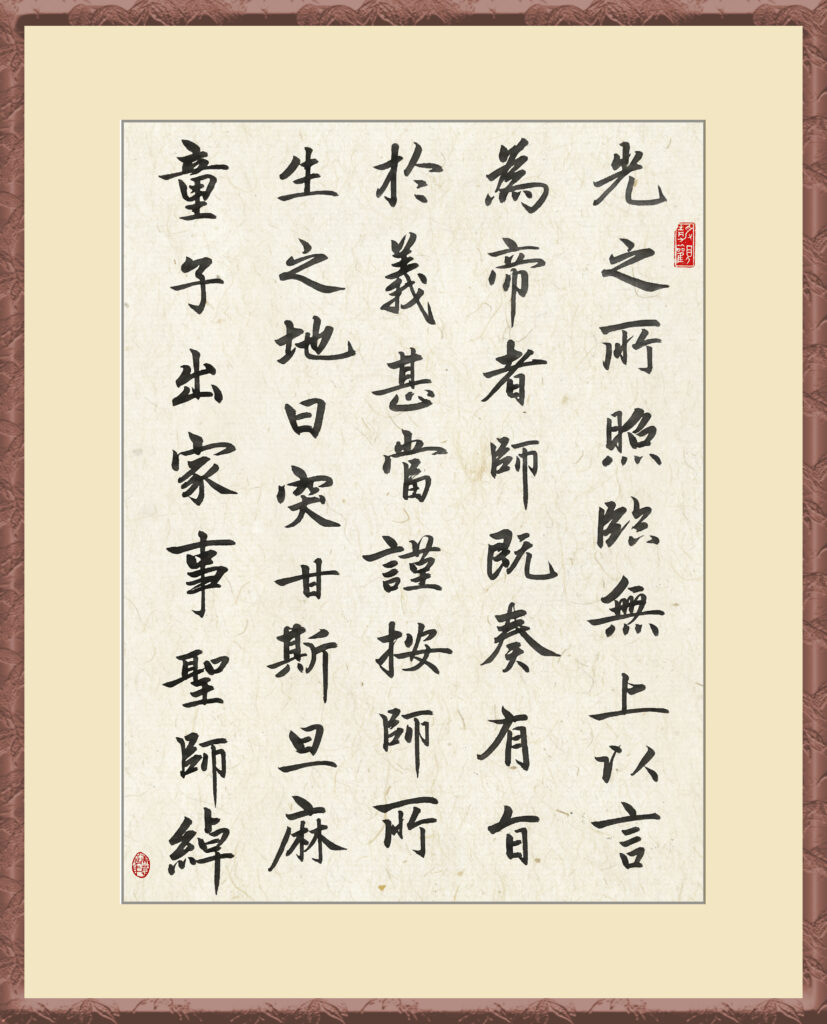 光之所照臨無上以言
為帝者師既奏有旨
於義甚當謹按師所
生之地曰突甘斯旦麻
童子出家事聖師綽